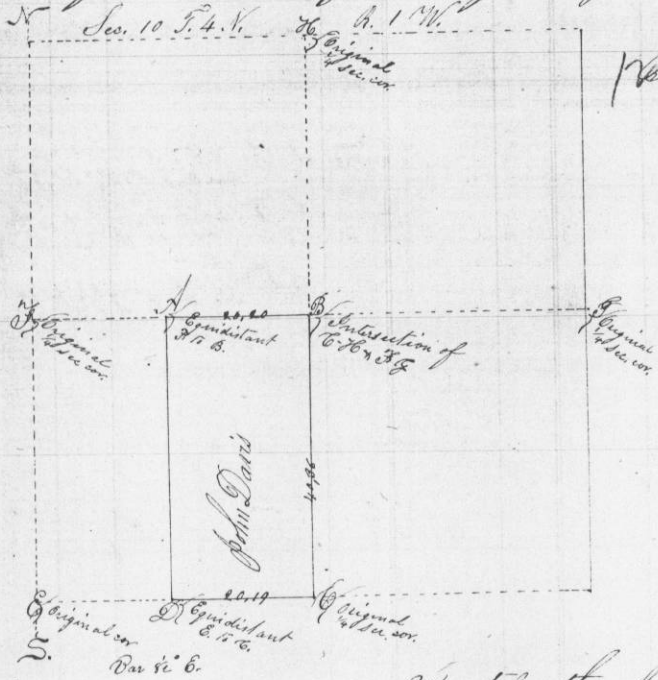 N
Sec. 10 T. 4. N. R. 1 W.
H
Original
1/4 Sec. cor.
F
Original
1/4 Sec cor.
A
20,20
Equidistant
F to B.
B
Intersection of
C-H & F G
G
Original
1/4 Sec. cor.
John Davis
E
Original cor
D
20,19
Equidistant
E. to C.
C
Original
1/4 Sec. cor.
S.
Var E.